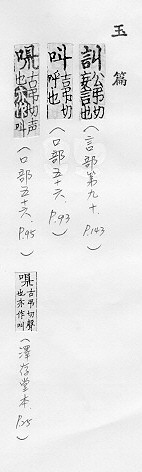 玉篇
訆 公弔切妄言也（言部第九十．P.143）
叫 古弔切呼也（口部五十六．P.93）
嘂 古弔切声也亦作叫（口部五十六．P.95）
嘂 古弔切聲也亦作叫（澤存堂本．P.25）